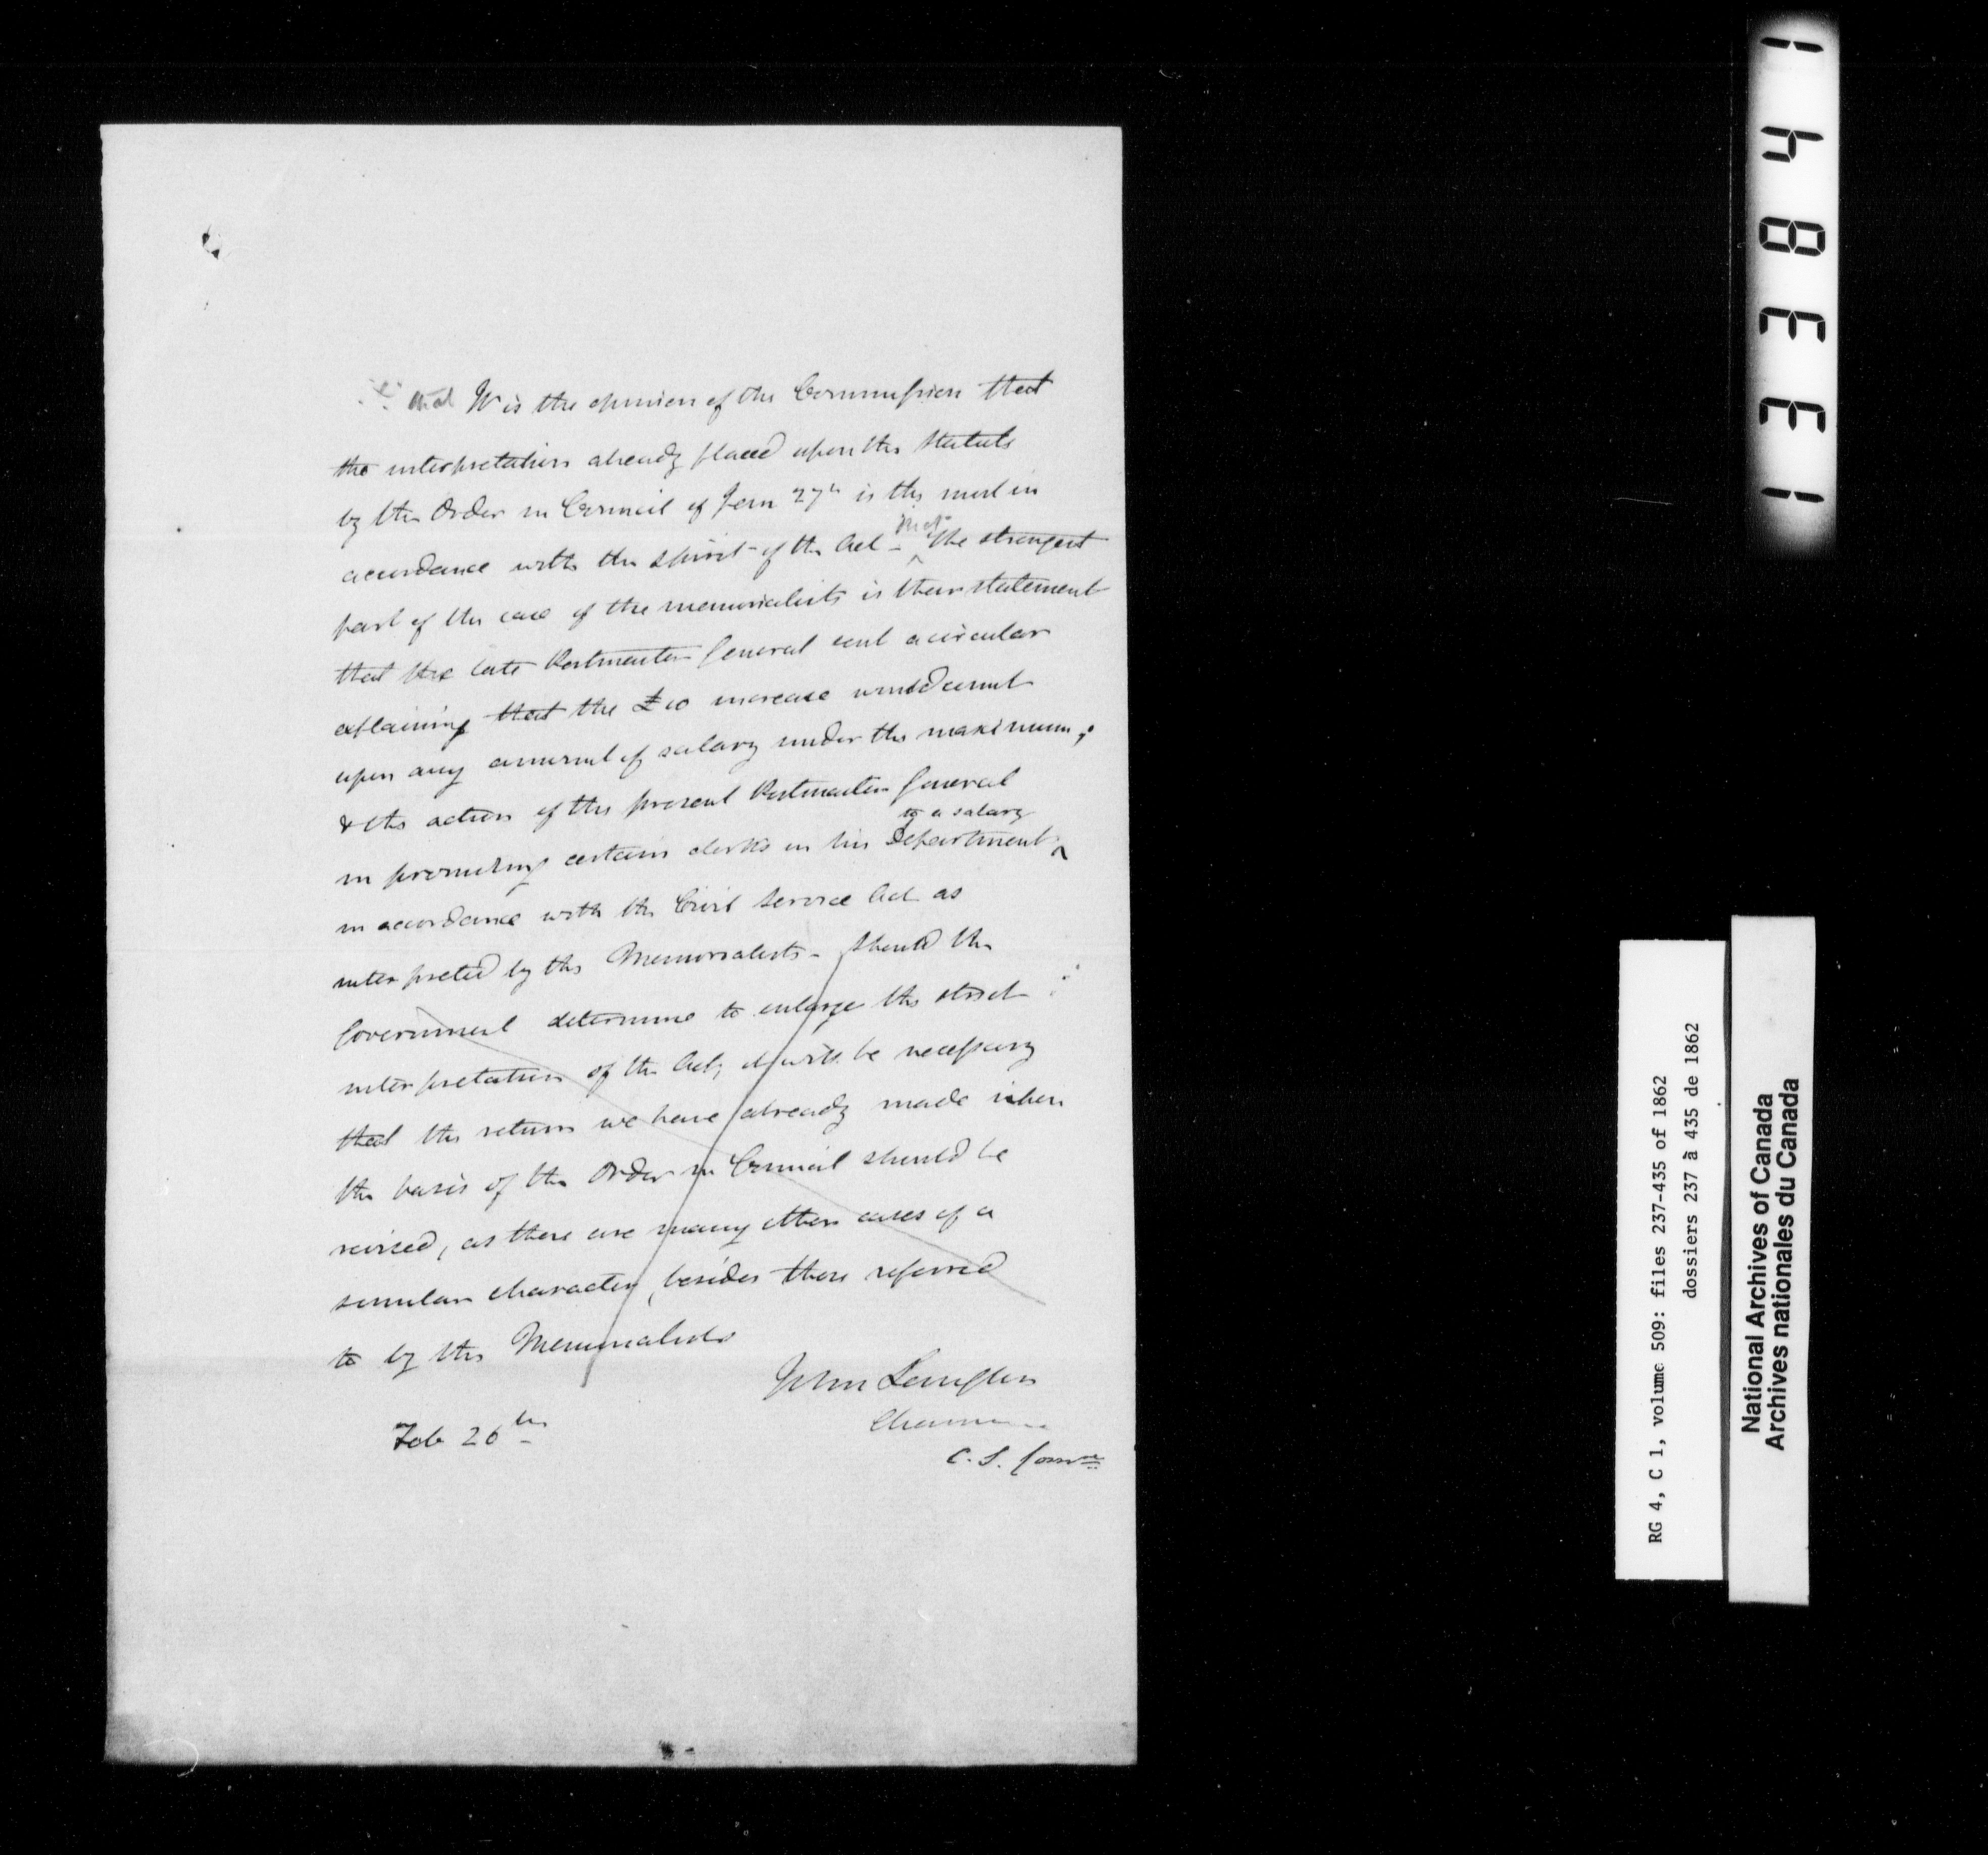 that It is the opinion of the Commission that
the interpretation already placed upon the Statute
by the Order in Council of Jan 27th is the most in
accordance with the spirit of the Act - that The strongest
part of the case of the memorialists is their statement
that the late Postmaster General sent a circular
explaining that the £10 increase would count
upon any amount of salary under the maximum,
& the action of the present Postmaster General
in promoting certain clerks in his Department to a salary
in accordance with the Civil Service Act as
interpreted by the Memorialists - Should the
Government determine to enlarge the strict
interpretation of the Act, it will be necessary
that the return we have already made when
the basis of the Order in Council should be
revised, as there are many other cases of a
similar character, besides those referred
to by the Memorialists
John Langton
Chairman
C. S. Comn
Feb 26th
13384 1
RG 4, C 1, volume 509: files 237-435 of 1862
dossiers 237 à 435 de 1862
National Archives of Canada
Archives nationales du Canada